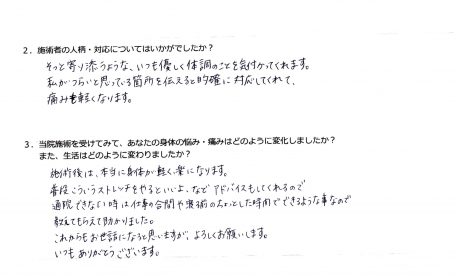 2．施術者の人柄・対応についてはいかがでしたか？
そっと寄り添うような、いつも優しく体調のことを気付かってくれます。
私がつらいと思っている箇所を伝えると的確に対応してくれて、
痛みも軽くなります。
3．当院施術を受けてみて、あなたの身体の悩み・痛みはどのように変化しましたか？
また、生活はどのように変わりましたか？
施術後は、本当に身体が軽く楽になります。
普段こういうストレッチをやるといいよ、などアドバイスもしてくれるので
通院できない時は仕事の合間や のちょっとした時間でできるような事なので
教えてもらえて助かりました。
これからもお世話になると思いますが、よろしくお願いします。
いつもありがとうございます。